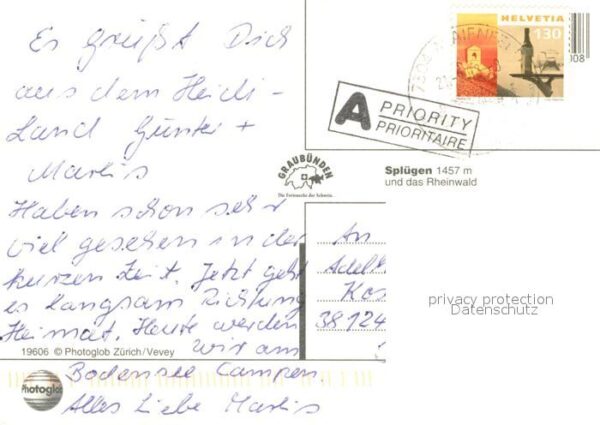 Es grüßt Dich
aus dem Heidi-
Land Günter +
Marlis
Haben schon sehr
viel gesehen in der
kurzen Zeit. Jetzt geht
es langsam Richtung
Heimat. Heute werden
wir am
Bodensee Campen.
Alles Liebe Marlis
HELVETIA
130
008
A PRIORITY
PRIORITAIRE
GRAUBÜNDEN
Die Ferienecke der Schweiz.
Splügen 1457 m
und das Rheinwald
An
Adel
Kos
38124
privacy protection
Datenschutz
19606 © Photoglob Zürich/Vevey
Photoglob